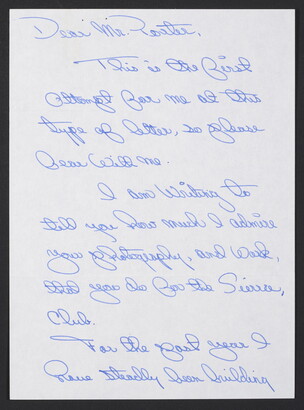 Dear Mr. Porter,
This is the first
attempt for me at this
type of letter, so please
bear with me.
I am writing to
tell you how much I admire
your photography, and work,
that you do for the Sierra
Club.
For the past year I
have steadly been building